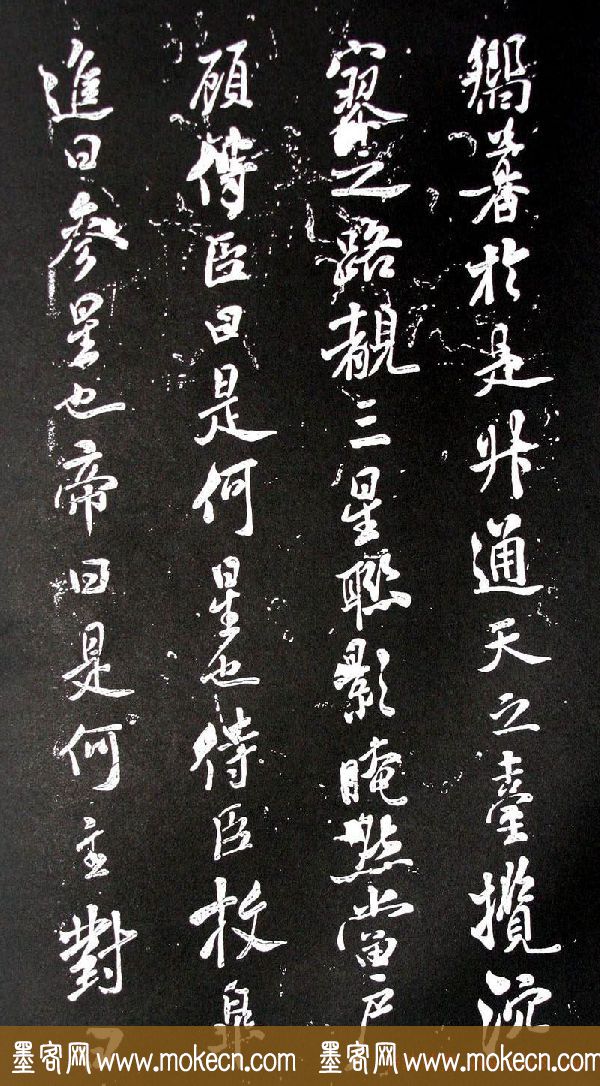 於是升通天之臺攬泬
寥之路覩三星聯影晻然當户
顧侍臣曰是何星也侍臣枚皋
進曰參星也帝曰是何主對曰
墨客网 www.mokecn.com 墨客网 www.mokecn.com